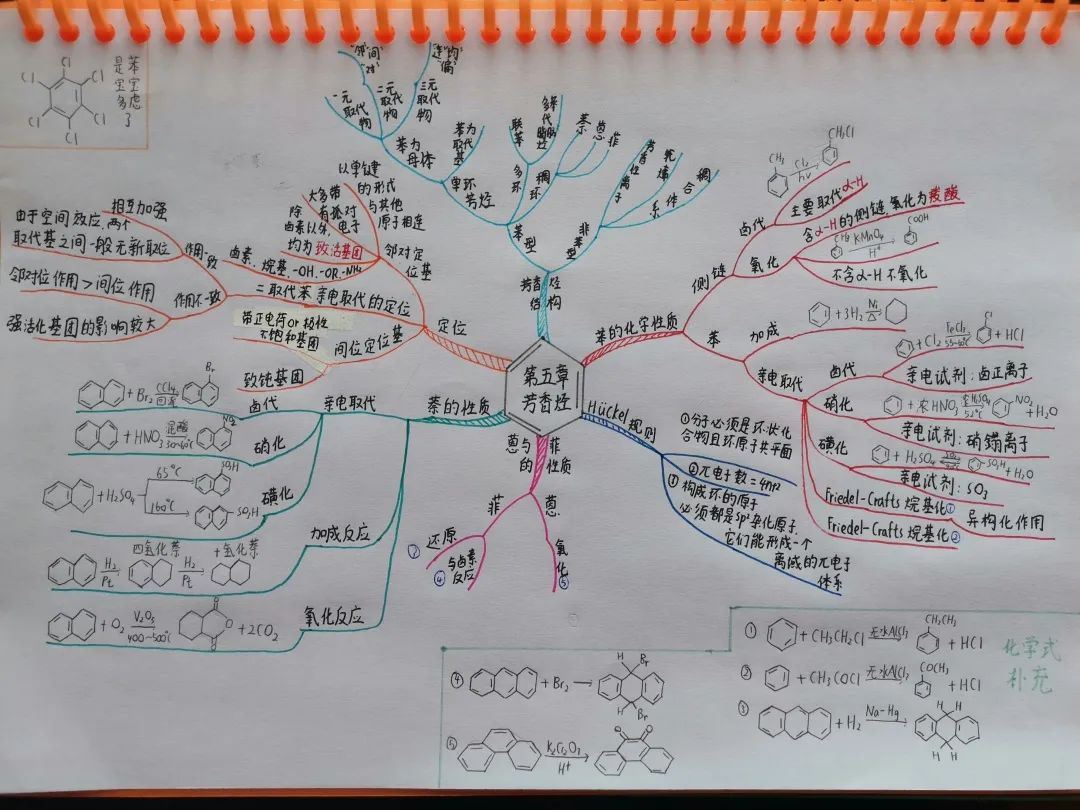 苯宝宝
是多虑了
Cl
Cl
Cl
Cl
Cl
Cl
第五章
芳香烃
芳香烃
结构
苯型
单环
芳烃
苯为
母体
一元
取代
物
二元
取代
物
"邻""间"
"对"
三元
取代
物
"连""均"
"偏"
苯为
取代
基
多环
联苯
稠环
萘
蒽
菲
非苯型
芳香性
离子
轮烯
稠合
体系
苯的化学性质
侧链
卤代
CH3
Cl2
hν
CH2Cl
主要取代α-H
氧化
含α-H的侧链,氧化为羧酸
CH3
KMnO4
H+
COOH
不含α-H 不氧化
苯
加成
+3H2
Ni
△
亲电取代
卤代
+Cl2
FeCl3
55-60℃
Cl
+HCl
亲电试剂:卤正离子
硝化
+浓HNO3
浓H2SO4
NO2
+H2O
亲电试剂:硝鎓离子
磺化
+H2SO4
SO3H
+H2O
亲电试剂:SO3
Friedel-Crafts 烷基化①
Friedel-Crafts 烷基化②
异构化作用
Hückel规则
①分子必须是环状化
合物且环原子共平面
②π电子数=4n+2
①构成环的原子
必须都是sp²杂化原子
它们能形成一个
离域的π电子
体系
蒽与菲
的性质
菲
还原
与卤素
反应
④
蒽
氧化
⑤
萘的性质
亲电取代
卤代
+Br2
CCl4
回流
Br
硝化
+HNO3
混酸
30-60℃
NO2
磺化
+H2SO4
65℃
SO3H
160℃
SO3H
加成反应
四氢化萘
十氢化萘
H2
Pt
H2
Pt
氧化反应
+O2
V2O5
400-500℃
O
O
O
+2CO2
定位
邻对定
位基
以单键
的形式
与其他
原子相连
大多带
有孤对
电子
除
卤素以外,
均为致活基团
卤素、烷基、-OH、-OR、-NH2
二取代苯亲电取代的定位
作用一致
相互加强
由于空间效应,两个
取代基之间一般无新取位
作用不一致
邻对位作用>间位作用
强活化基团的影响较大
间位定位基
带正电荷or极性
不饱和基团
致钝基团
化学式
补充
①
+CH3CH2Cl
无水AlCl3
CH2CH3
+HCl
②
+CH3COCl
无水AlCl3
COCH3
+HCl
③
+H2
Na-Hg
H H
H H
④
+Br2
H Br
H Br
⑤
K2Cr2O7
H+
O
O